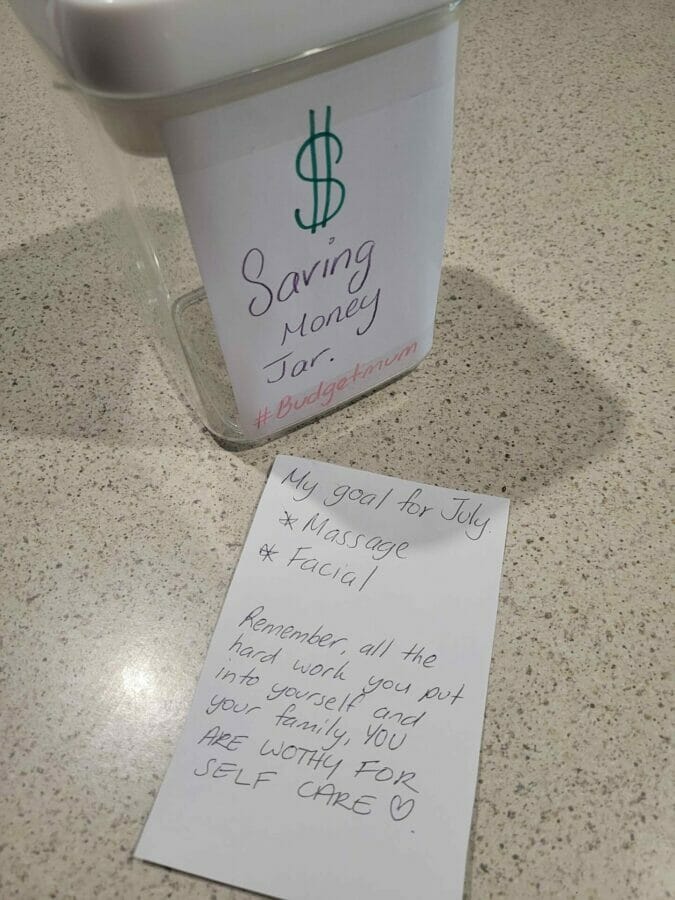 $
Saving
Money
Jar.
#Budgetmum
My goal for July.
* Massage
* Facial
Remember, all the
hard work you put
into yourself and
your family, YOU
ARE WOTHY FOR
SELF CARE ♡